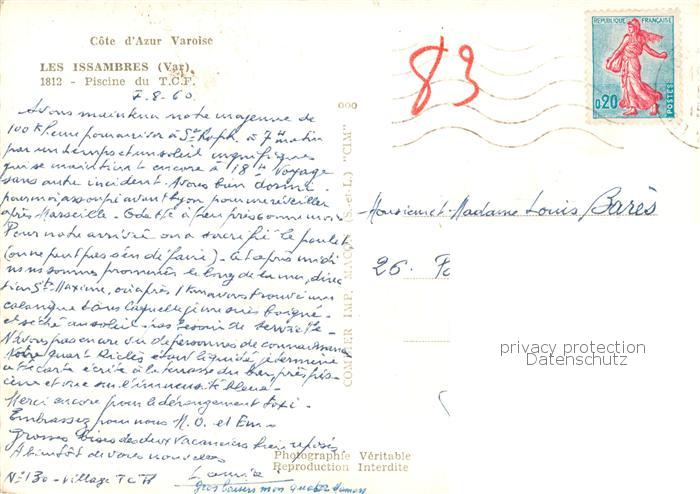 Côte d'Azur Varoise
LES ISSAMBRES (Var)
1812 - Piscine du T.C.F.
7-8-60
Avons maintenu notre moyenne de
100 K/heure pour arriver à St Raph. à 7h matin
par un temps et un soleil magnifiques
qui se maintient encore à 18h. Voyage
sans autre incident. Avons bien dormi.
pour moi, assoupi avant Lyon pour me réveiller
après Marseille. Odette à peu près comme moi
Pour notre arrivée on a sacrifié le poulet
(on ne peut pas s'en défaire). Cet après midi
nous nous sommes promenés le long de la mer, direc
tion Ste Maxime, où après 1 Km avons trouvé une
calanque dans laquelle je me suis baigné
et séché au soleil - pas besoin de serviette.
N'avons pas encore vu de personnes de connaissance
Notre quart Riclès étant liquidé je termine
cette carte écrite à la terrasse du bar, près pis-
cine et vue sur l'immensité bleue.
Merci encore pour le dérangement taxi.
Embrassez pour nous M.O. et Em.
Grosses bises des deux vacanciers bien reposés
A bientôt de vos nouvelles
N° 130 - Village TCF
Gros baisers mon
83
REPUBLIQUE FRANÇAISE
0,20
POSTES
COMBIER IMP. MACON (S.-et-L.) "CIM"
Monsieur et Madame Louis Barès
26.
privacy protection
Datenschutz
Photographie Véritable
Reproduction Interdite